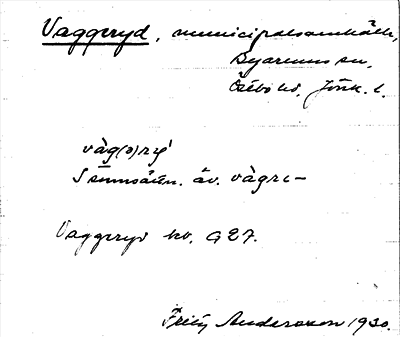 Vaggeryd, municipalsamhälle,
Byarums sn,
Östbo hd, Jönk. l.
våg(ə)rý
I sms. även. äv. vàgrɩ–
Vaggeryd hd. G27.
Fritz Andersson 1930.